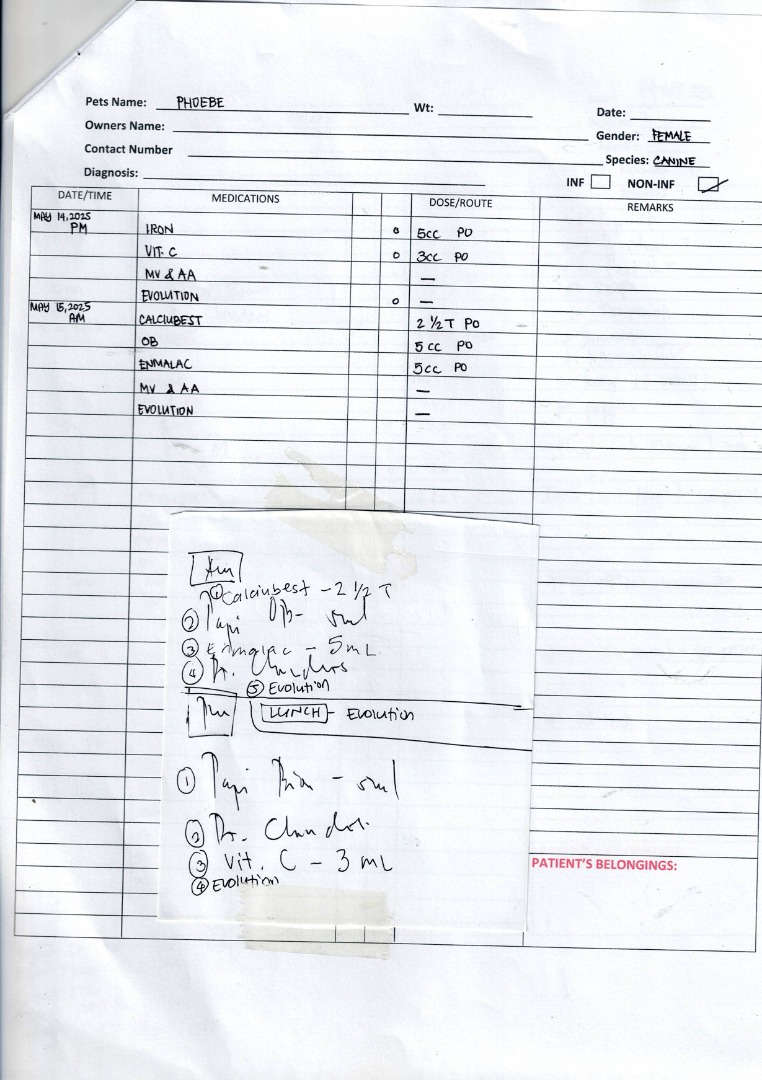 Pets Name: PHOEBE Wt: Date:
Owners Name: Gender: FEMALE
Contact Number Species: CANINE
Diagnosis: INF NON-INF
DATE/TIME MEDICATIONS DOSE/ROUTE REMARKS
MAY 14, 2025
PM IRON 5cc PO
VIT. C 3cc PO
MV & AA —
EVOLUTION —
MAY 15, 2025
AM CALCIUBEST 2 1/2 T PO
OB 5 cc PO
ENMALAC 5cc PO
MV & AA —
EVOLUTION —
Am
① Calciubest - 2 1/2 T
② Papi OB- 5ml
③ Enmalac - 5mL
④ Dr.
⑤ Evolution
Pm LUNCH - Evolution
① Papi Iron - 5ml
② Dr.
③ Vit. C - 3 mL
④ Evolution
PATIENT'S BELONGINGS: